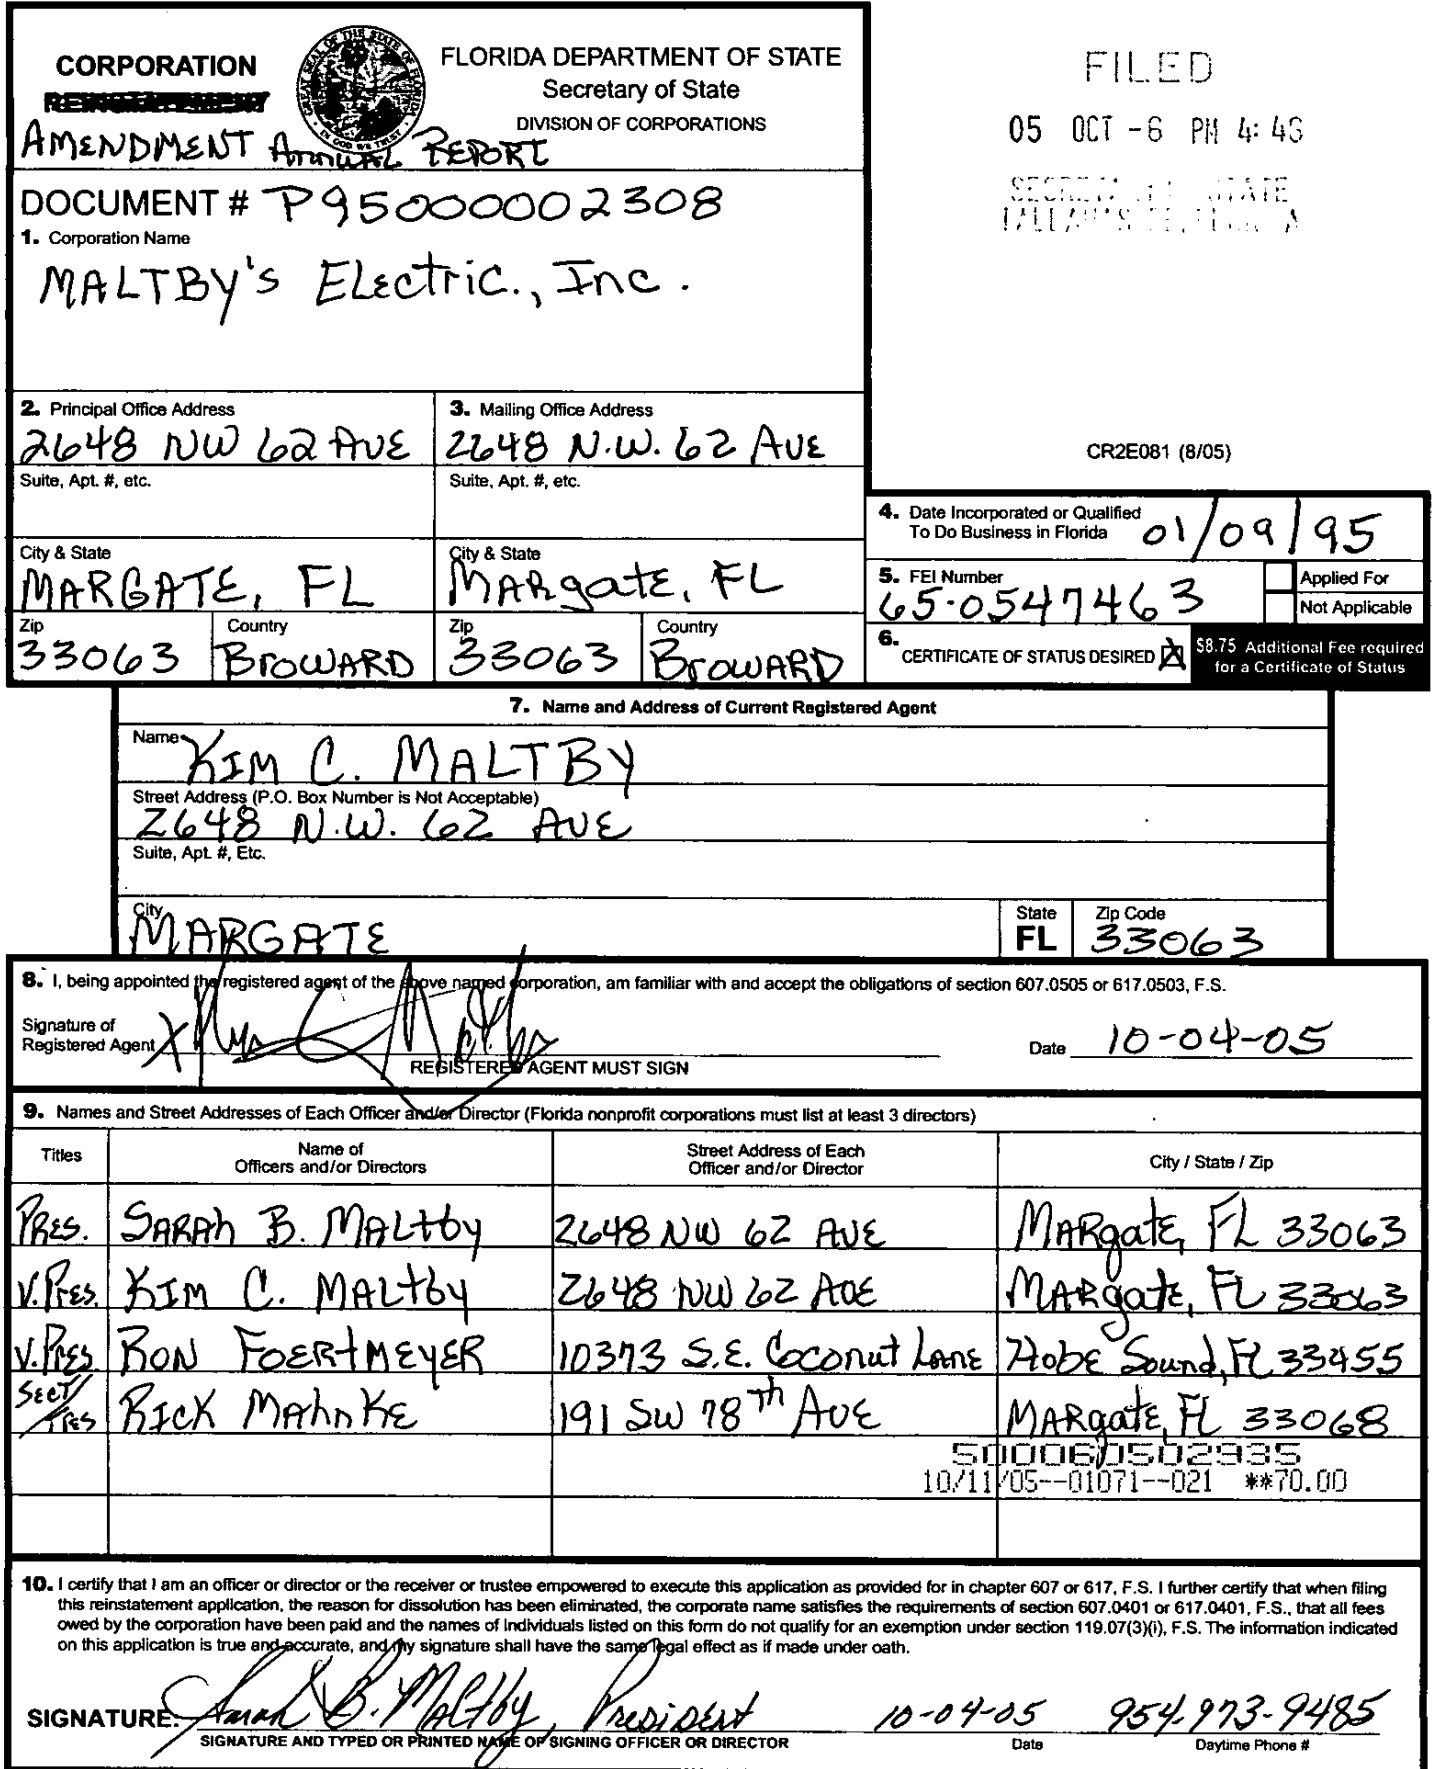 CORPORATION
AMENDMENT ANNUAL REPORT
GREAT SEAL OF THE STATE OF FLORIDA
IN GOD WE TRUST
FLORIDA DEPARTMENT OF STATE
Secretary of State
DIVISION OF CORPORATIONS
FILED
05 OCT -6 PM 4:46
STATE
DOCUMENT # P95000002308
1. Corporation Name
MALTBY'S ELectric., Inc.
2. Principal Office Address
2648 NW 62 AVE
3. Mailing Office Address
2648 N.W. 62 AVE
Suite, Apt. #, etc.
Suite, Apt. #, etc.
CR2E081 (8/05)
City & State
MARGATE, FL
City & State
MARgatE, FL
Zip
33063
Country
BroWARD
Zip
33063
Country
BroWARD
4. Date Incorporated or Qualified
To Do Business in Florida 01/09/95
5. FEI Number
65-0547463
Applied For
Not Applicable
6. CERTIFICATE OF STATUS DESIRED X
$8.75 Additional Fee required
for a Certificate of Status
7. Name and Address of Current Registered Agent
Name
KIM C. MALTBY
Street Address (P.O. Box Number is Not Acceptable)
2648 N.W. 62 AVE
Suite, Apt. #, Etc.
City
MARGATE
State
FL
Zip Code
33063
8. I, being appointed the registered agent of the above named corporation, am familiar with and accept the obligations of section 607.0505 or 617.0503, F.S.
Signature of
Registered Agent X
REGISTERED AGENT MUST SIGN
Date 10-04-05
9. Names and Street Addresses of Each Officer and/or Director (Florida nonprofit corporations must list at least 3 directors)
Titles
Name of
Officers and/or Directors
Street Address of Each
Officer and/or Director
City / State / Zip
PRES. SARAh B. MALtby 2648 NW 62 AVE MARgatE, FL 33063
V. PrES. KIM C. MALtby 2648 NW 62 AVE MARgatE, FL 33063
V. PrES. RON FOERtMEYER 10373 S.E. Coconut LANE HobE Sound, FL 33455
SECT/TRES RICK MAhnKE 191 SW 78th AVE MARgatE, FL 33068
500060502935
10/11/05--01071--021 **70.00
10. I certify that I am an officer or director or the receiver or trustee empowered to execute this application as provided for in chapter 607 or 617, F.S. I further certify that when filing
this reinstatement application, the reason for dissolution has been eliminated, the corporate name satisfies the requirements of section 607.0401 or 617.0401, F.S., that all fees
owed by the corporation have been paid and the names of individuals listed on this form do not qualify for an exemption under section 119.07(3)(i), F.S. The information indicated
on this application is true and accurate, and my signature shall have the same legal effect as if made under oath.
SIGNATURE: Sarah B. Maltby, President 10-04-05 954-973-9485
SIGNATURE AND TYPED OR PRINTED NAME OF SIGNING OFFICER OR DIRECTOR
Date
Daytime Phone #